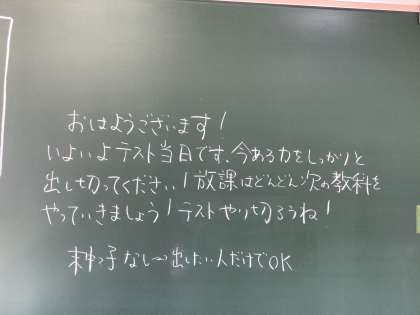 おはようございます!
いよいよテスト当日です、今ある力をしっかりと
出し切ってください!放課はどんどん次の教科を
やっていきましょう!テストやり切ろうね!
なし〜出したい人だけでOK